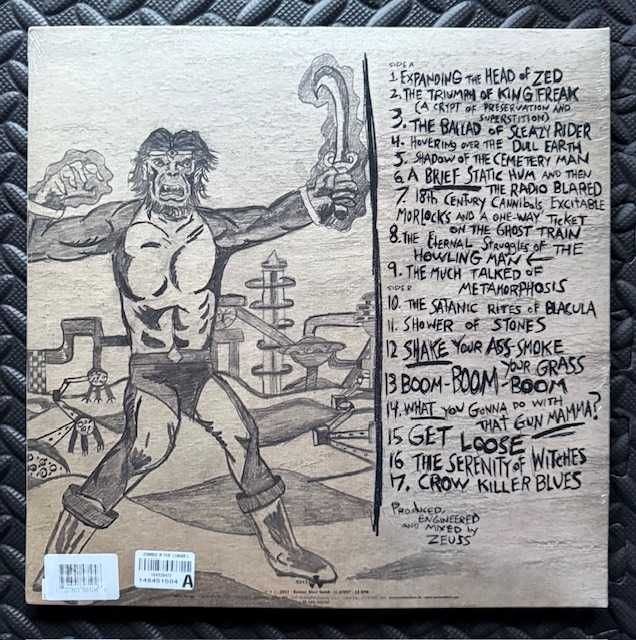 SIDE A
1. EXPANDING THE HEAD OF ZED
2. THE TRIUMPH OF KING FREAK
(A CRYPT OF PRESERVATION AND
SUPERSTITION)
3. THE BALLAD OF SLEAZY RIDER
4. HOVERING OVER THE DULL EARTH
5. SHADOW OF THE CEMETERY MAN
6. A BRIEF STATIC HUM AND THEN
THE RADIO BLARED
7. 18th CENTURY CANNIBALS EXCITABLE
MORLOCKS AND A ONE-WAY TICKET
ON THE GHOST TRAIN
8. THE ETERNAL STRUGGLES OF THE
HOWLING MAN
9. THE MUCH TALKED OF
METAMORPHOSIS
SIDE B
10. THE SATANIC RITES OF BLACULA
11. SHOWER OF STONES
12 SHAKE YOUR ASS-SMOKE
YOUR GRASS
13 BOOM-BOOM-BOOM
14. WHAT YOU GONNA DO WITH
THAT GUN MAMMA?
15 GET LOOSE
16 THE SERENITY OF WITCHES
17. CROW KILLER BLUES
PRODUCED,
ENGINEERED
AND MIXED BY
ZEUSS
A